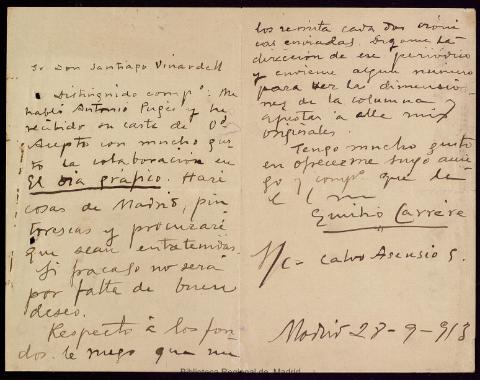 Sr Don Santiago Vinardell
Distinguido compº: Me
habló Antonio Pugés y he
recibido su carta de Vd.
Acepto con mucho gus-
to la colaboración en
El día gráfico. Haré
cosas de Madrid, pin-
torescas y procuraré
que sean entretenidas.
Si fracaso no será
por falta de buen
deseo.
Respecto á los fon-
dos le ruego que me
los remita cada dos cróni-
cas enviadas. Dígame la
dirección de ese periódico
y envieme algun número
para ver las dimensio-
nes de la columna y
ajustar a ella mis
originales.
Tengo mucho gusto
en ofrecerme suyo ami-
go y compº que le
e l m
Emilio Carrère
S/c - Calvo Asensio 5.
Madrid 28-9-913
Biblioteca Regional de Madrid